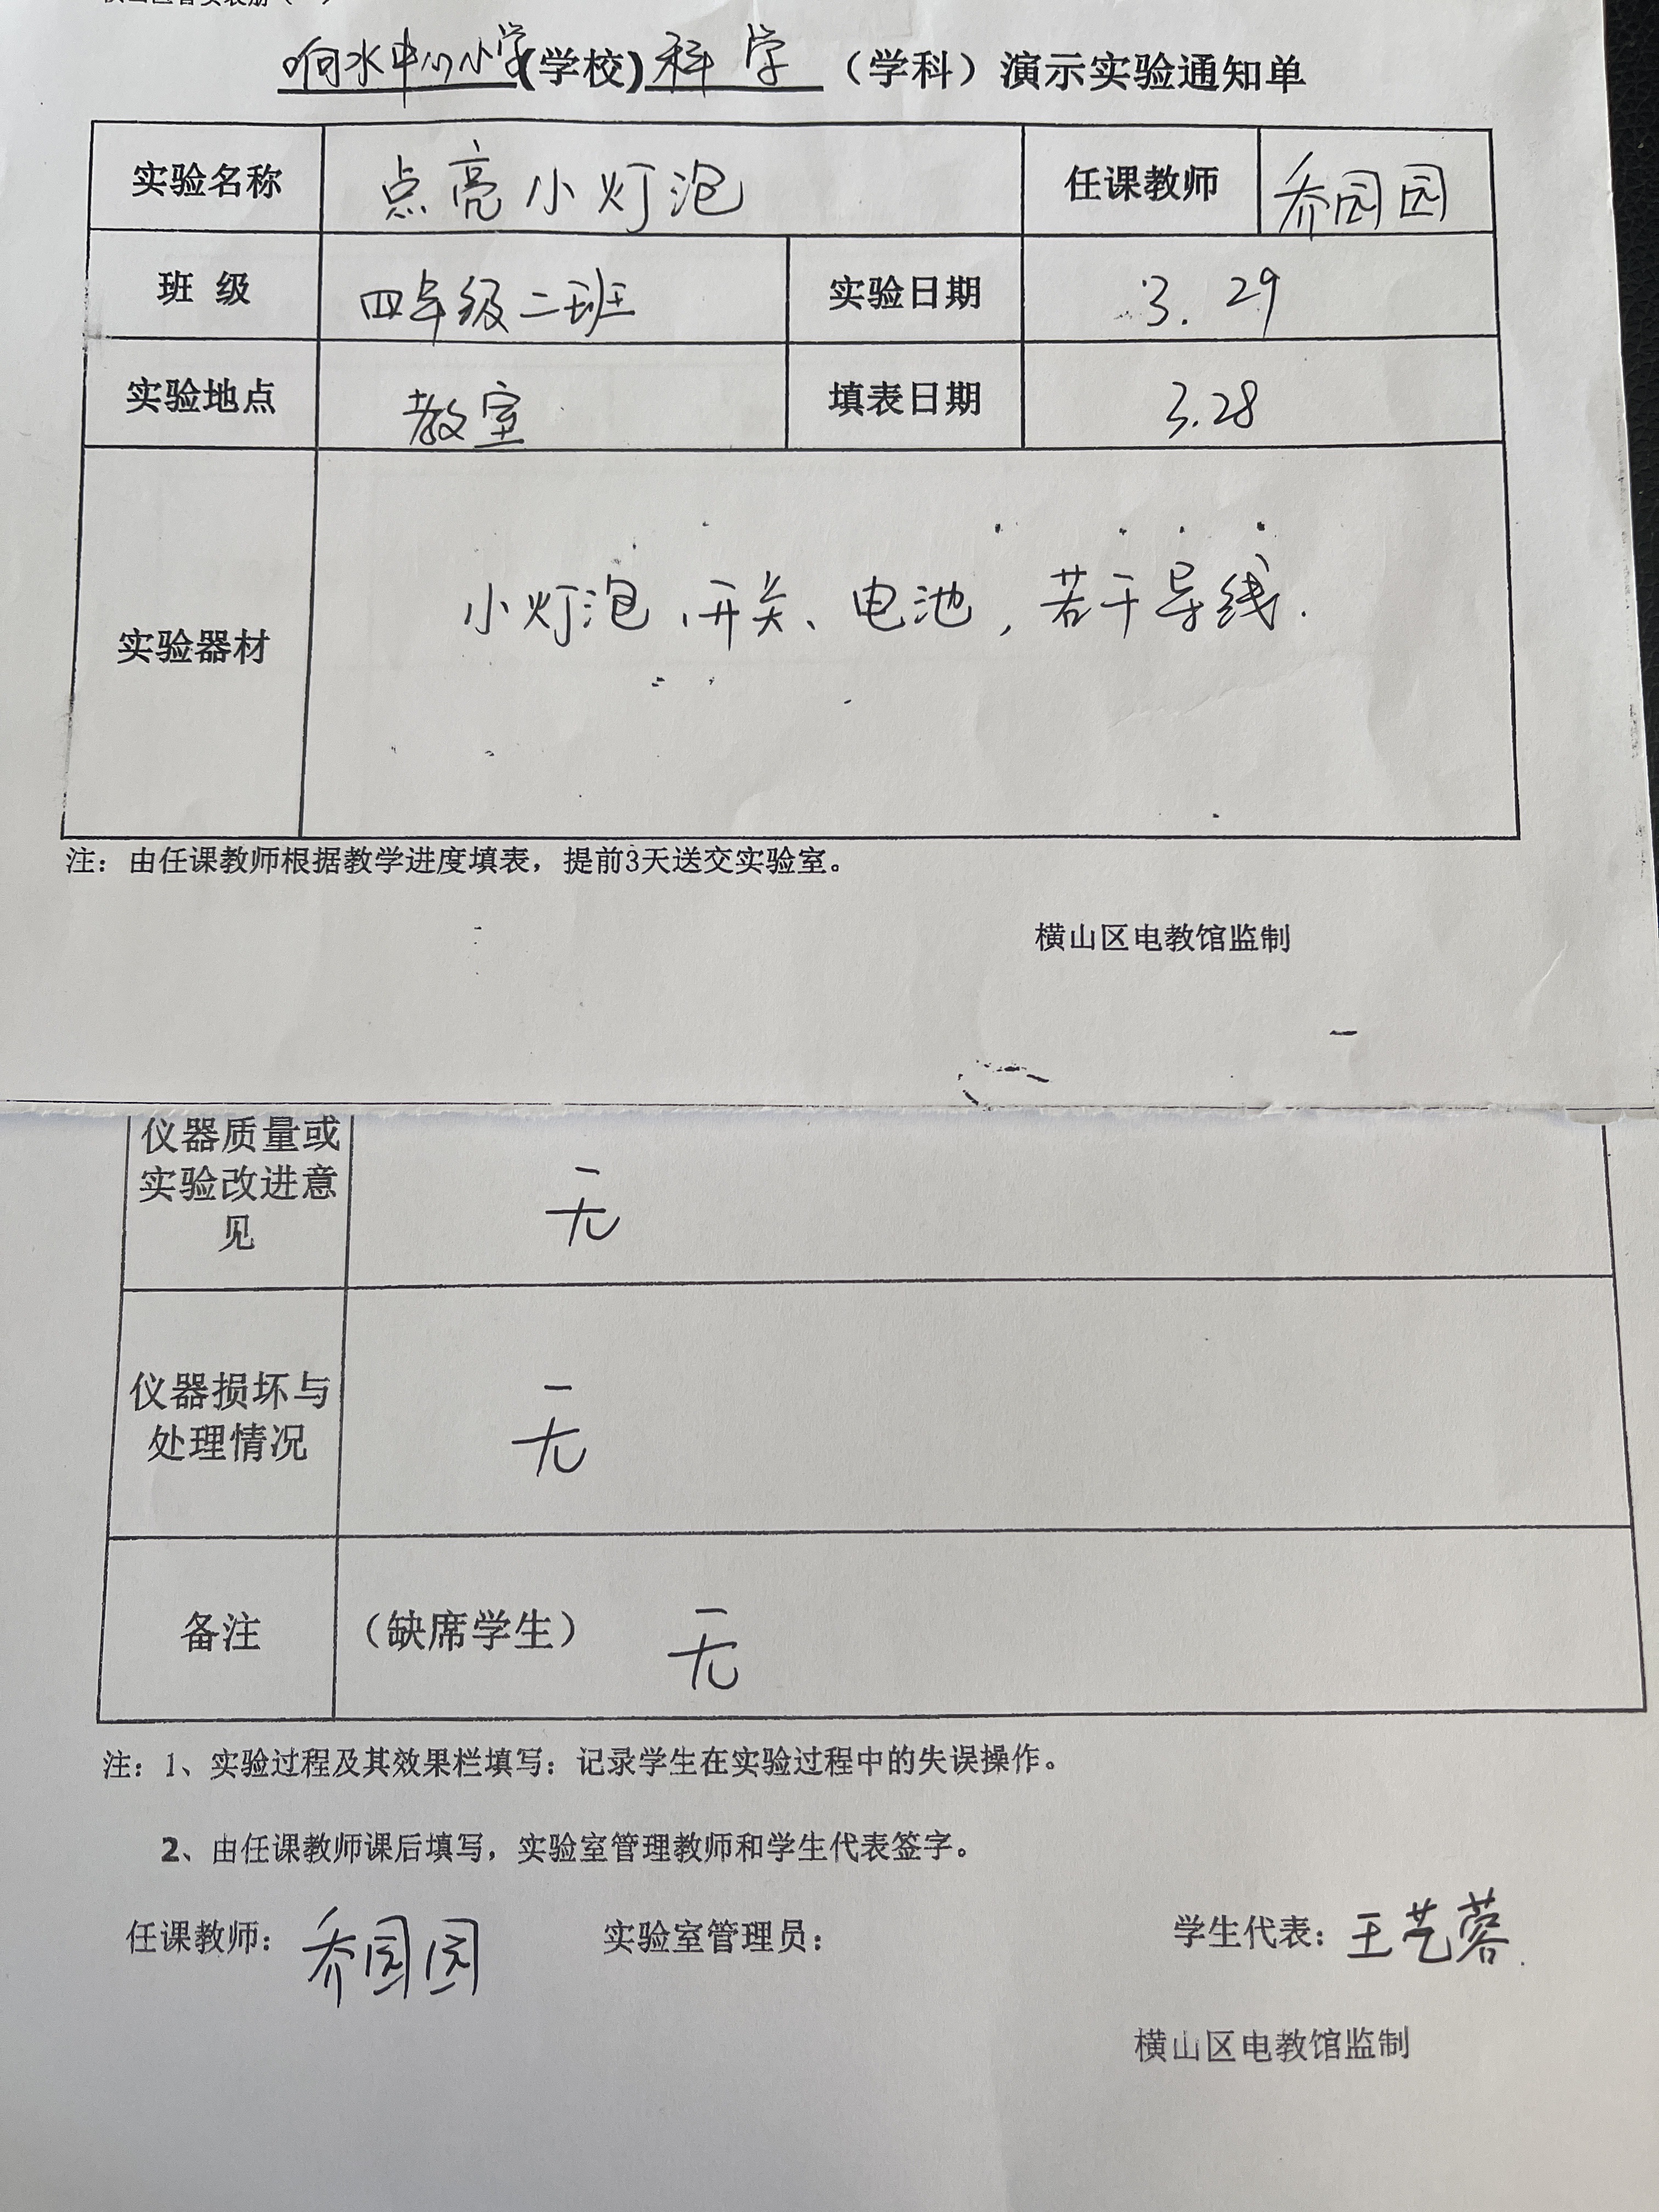 响水中心小学(学校)科学（学科）演示实验通知单
实验名称 点亮小灯泡 任课教师 乔园园
班 级 四年级二班 实验日期 3.29
实验地点 教室 填表日期 3.28
实验器材 小灯泡、开关、电池，若干导线.
注：由任课教师根据教学进度填表，提前3天送交实验室。
横山区电教馆监制
仪器质量或
实验改进意 无
见
仪器损坏与
处理情况 无
备注 （缺席学生） 无
注：1、实验过程及其效果栏填写：记录学生在实验过程中的失误操作。
2、由任课教师课后填写，实验室管理教师和学生代表签字。
任课教师：乔园园 实验室管理员： 学生代表：王艺蓉.
横山区电教馆监制